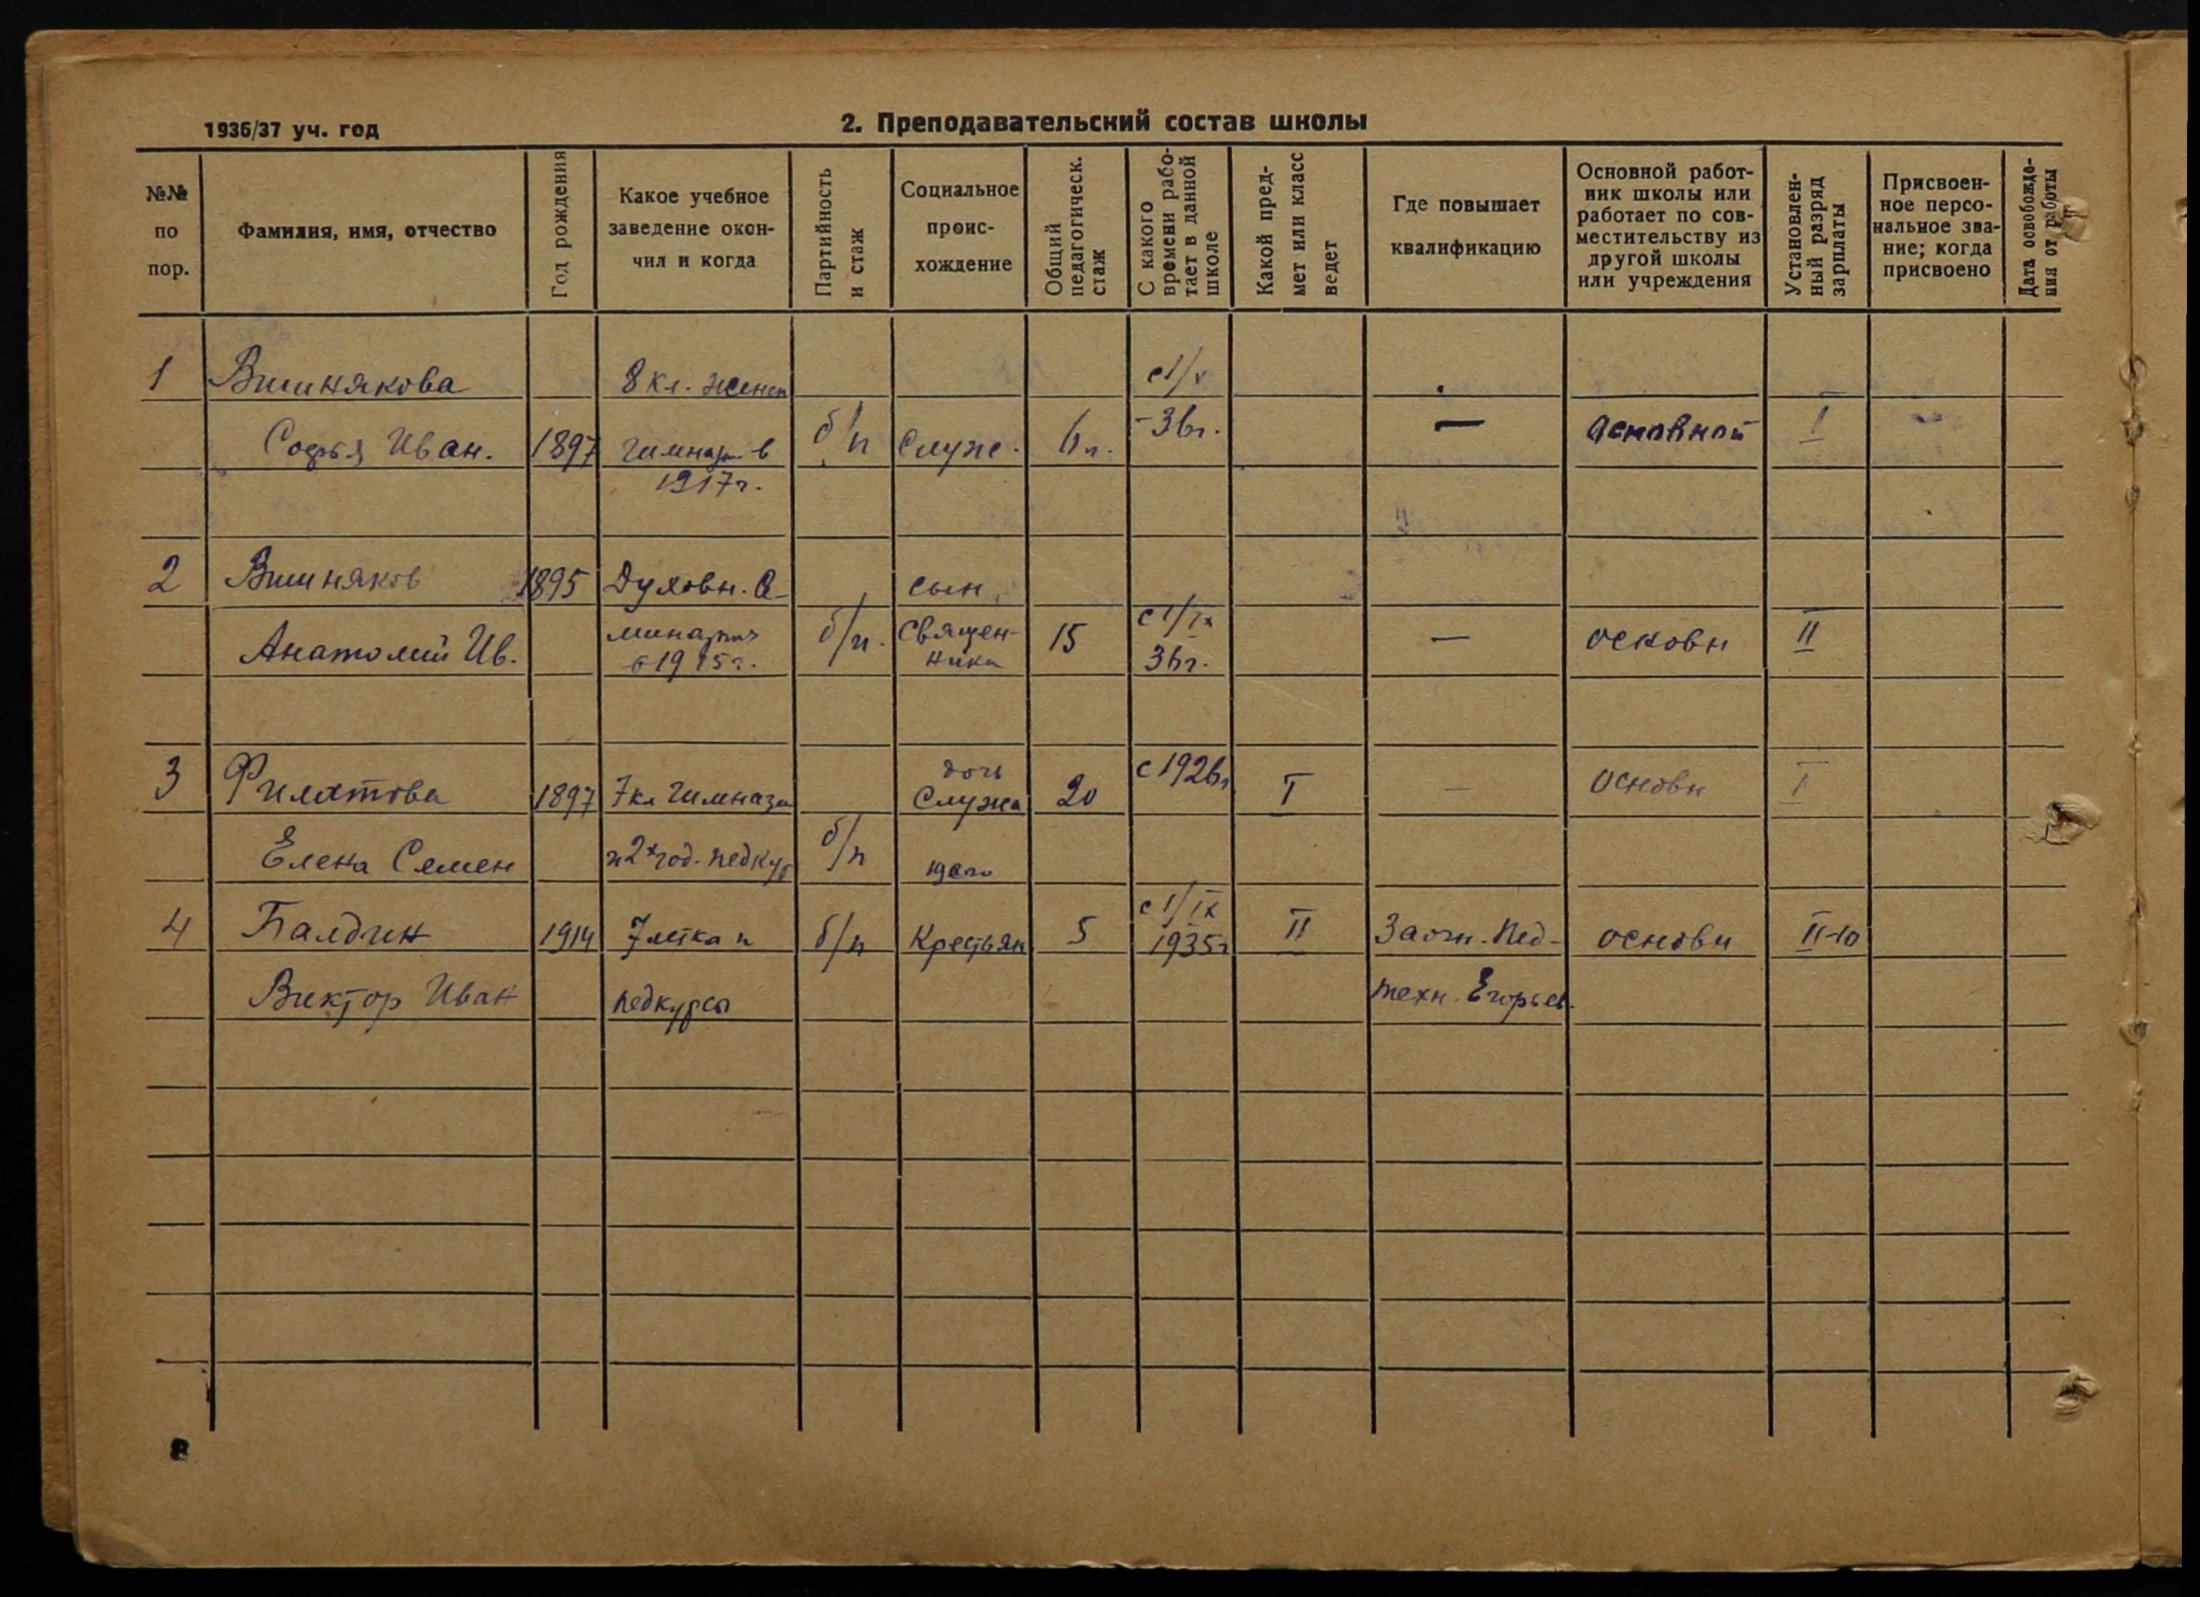 1936/37 уч. год
2. Преподавательский состав школы
№№ по пор.
Фамилия, имя, отчество
Год рождения
Какое учебное заведение окончил и когда
Партийность и стаж
Социальное происхождение
Общий педагогическ. стаж
С какого времени работает в данной школе
Какой предмет или класс ведет
Где повышает квалификацию
Основной работник школы или работает по совместительству из другой школы или учреждения
Установленный разряд зарплаты
Присвоенное персональное звание; когда присвоено
Дата освобождения от работы
1 Вишнякова 8 кл. женск с 1/V
Софья Иван. 1897 гимназ. в б/п Служ. 6 л. -36г. — основной I
1917г.
2 Вишняков 1895 Духовн. се- сын
Анатолий Ив. минарию б/п. священ- 15 с 1/IX — основн II
в 1915г. ника 36г.
3 Филатова 1897 7 кл гимнази дочь Служа 20 с 1926г I — основн I
Елена Семен и 2х год. педкур б/п щего
4 Балдин 1914 7летка и б/п Крестьян 5 с 1/IX 1935г II Заочн. Пед- основн II-10
Виктор Иван педкурсы техн. Егорьев.
8